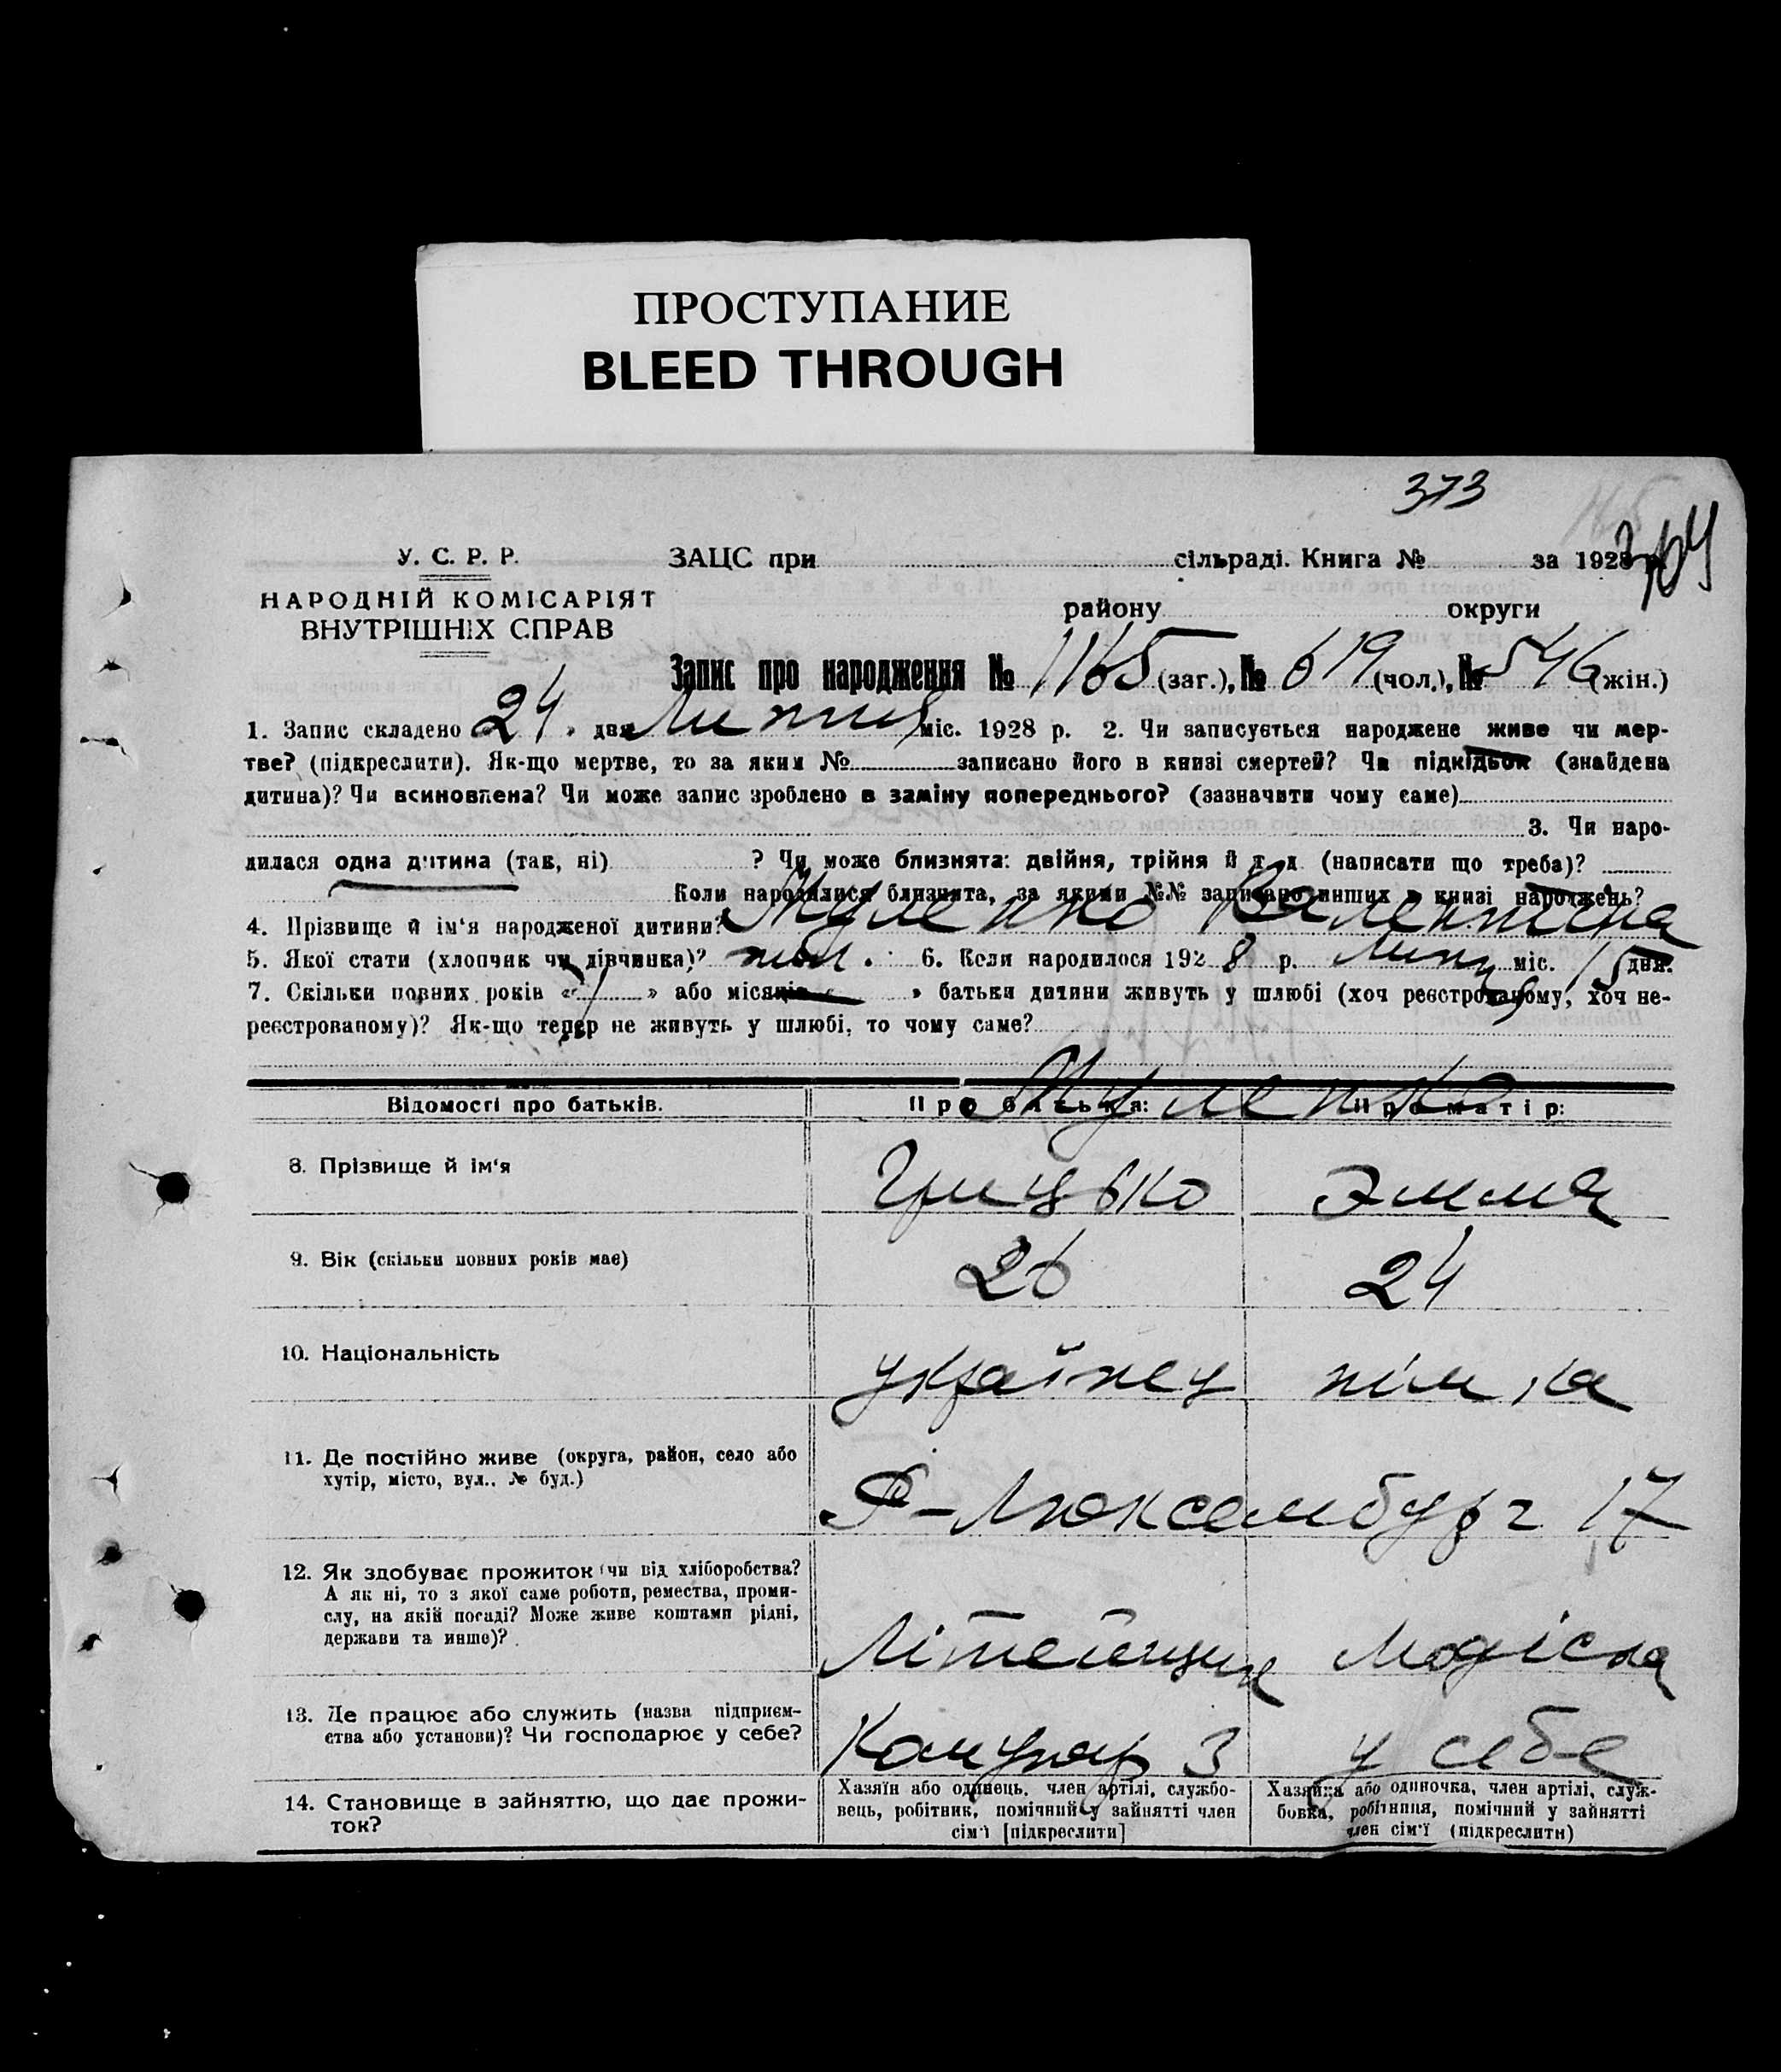 ПРОСТУПАНИЕ
BLEED THROUGH
373
364
У. С. Р. Р.
НАРОДНІЙ КОМІСАРІЯТ
ВНУТРІШНІХ СПРАВ
ЗАЦС при сільраді. Книга № за 1928 р.
району округи
Запис про народження № 1165 (заг.), № 619 (чол.), № 546 (жін.)
1. Запис складено 24 » дня Липня міс. 1928 р. 2. Чи записується народжене живе чи мер-
тве? (підкреслити). Як-що мертве, то за яким № записано його в книзі смертей? Чи підкідьок (знайдена
дитина)? Чи всиновлена? Чи може запис зроблено в заміну попереднього? (зазначити чому саме)
3. Чи наро-
дилася одна дитина (так, ні) ? Чи може близнята: двійня, трійня й т. д. (написати що треба)?
Коли народилися близнята, за якими №№ записано инших в книзі народжень?
4. Прізвище й ім‘я народженої дитини? Жуленко Валентина
5. Якої стати (хлопчик чи дівчинка)? жін. 6. Коли народилося 1928 р. Липня міс. 15 дня.
7. Скільки повних років « 1 » або місяців « » батьки дитини живуть у шлюбі (хоч реєстрованому, хоч не-
реєстрованому)? Як-що тепер не живуть у шлюбі, то чому саме?
Жуленко
Відомості про батьків. Про батька: Про матір:
8. Прізвище й ім‘я Грицько Эмма
9. Вік (скільки повних років має) 26 24
10. Національність українец німка
11. Де постійно живе (округа, район, село або
хутір, місто, вул., № буд.)
Р-Люксембург 17
12. Як здобуває прожиток (чи від хліборобства?
А як ні, то з якої саме роботи, ремества, проми-
слу, на якій посаді? Може живе коштами рідні,
держави та инше)?
Літейщик Модістка
13. Де працює або служить (назва підприєм-
ства або установи)? Чи господарює у себе?
З у себе
14. Становище в зайняттю, що дає прожи-
ток?
Хазяїн або одинець, член артілі, службо-
вець, робітник, помічний у зайнятті член
сім‘ї [підкреслити]
Хазяйка або одиночка, член артілі, служ-
бовка, робітниця, помічний у зайнятті
член сім‘ї (підкреслити)